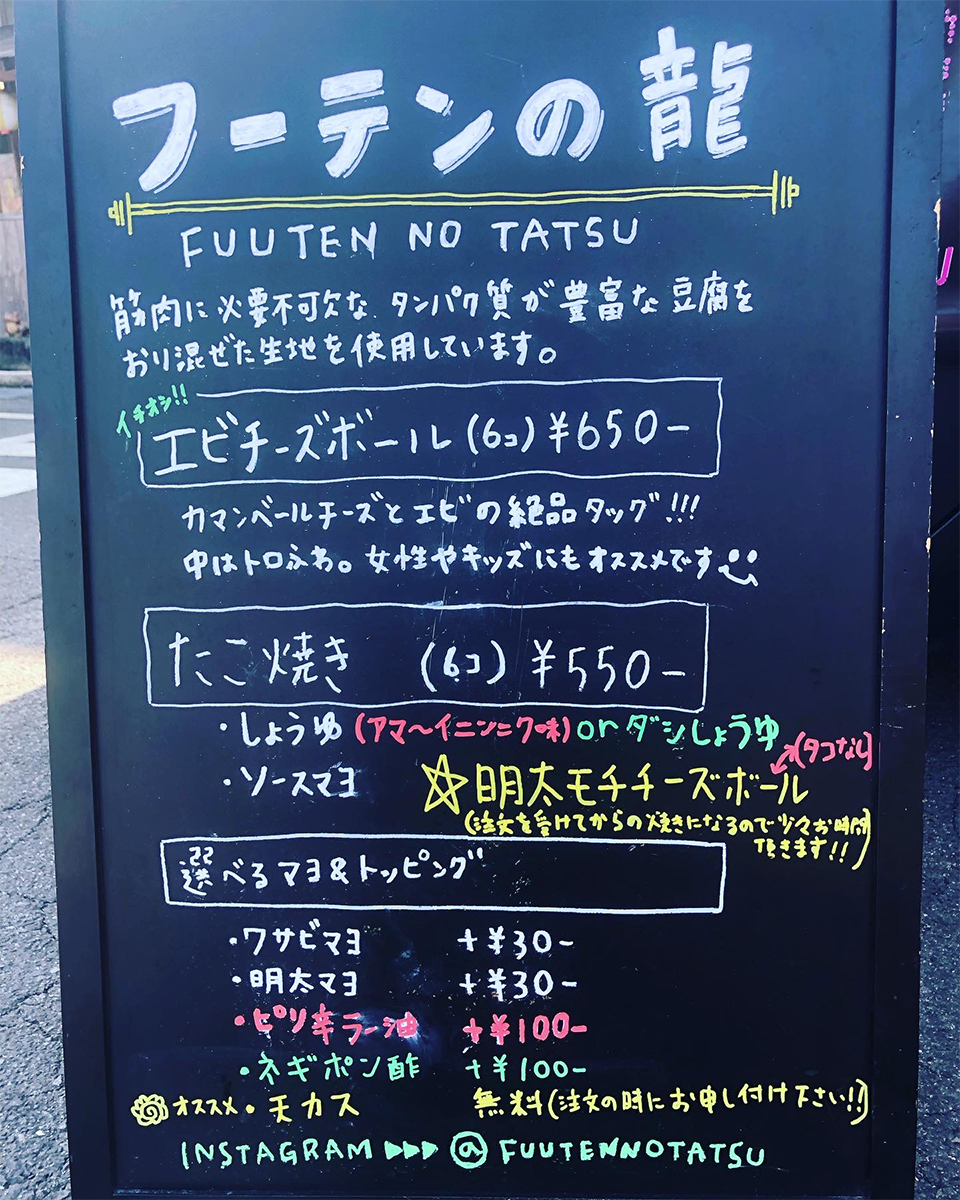 フーテンの龍
FUUTEN NO TATSU
筋肉に必要不可欠な タンパク質が豊富な豆腐を
おり混ぜた生地を使用しています。
イチオシ!!
エビチーズボール(6コ)¥650-
カマンベールチーズとエビの絶品タッグ!!!
中はトロふわ。女性やキッズにもオススメです
たこ焼き (6コ) ¥550-
・しょうゆ(アマ〜イニンニク味)orダシしょうゆ
(タコなし)
・ソースマヨ ☆明太モチチーズボール
(注文を受けてからの焼きになるので少々お時間
頂きます!!)
選べるマヨ&トッピング
・ワサビマヨ +¥30-
・明太マヨ +¥30-
・ピリ辛ラー油 +¥100-
・ネギポン酢 +¥100-
オススメ・天カス 無料(注文の時にお申し付け下さい!!)
INSTAGRAM ▶▶▶ @FUUTENNOTATSU